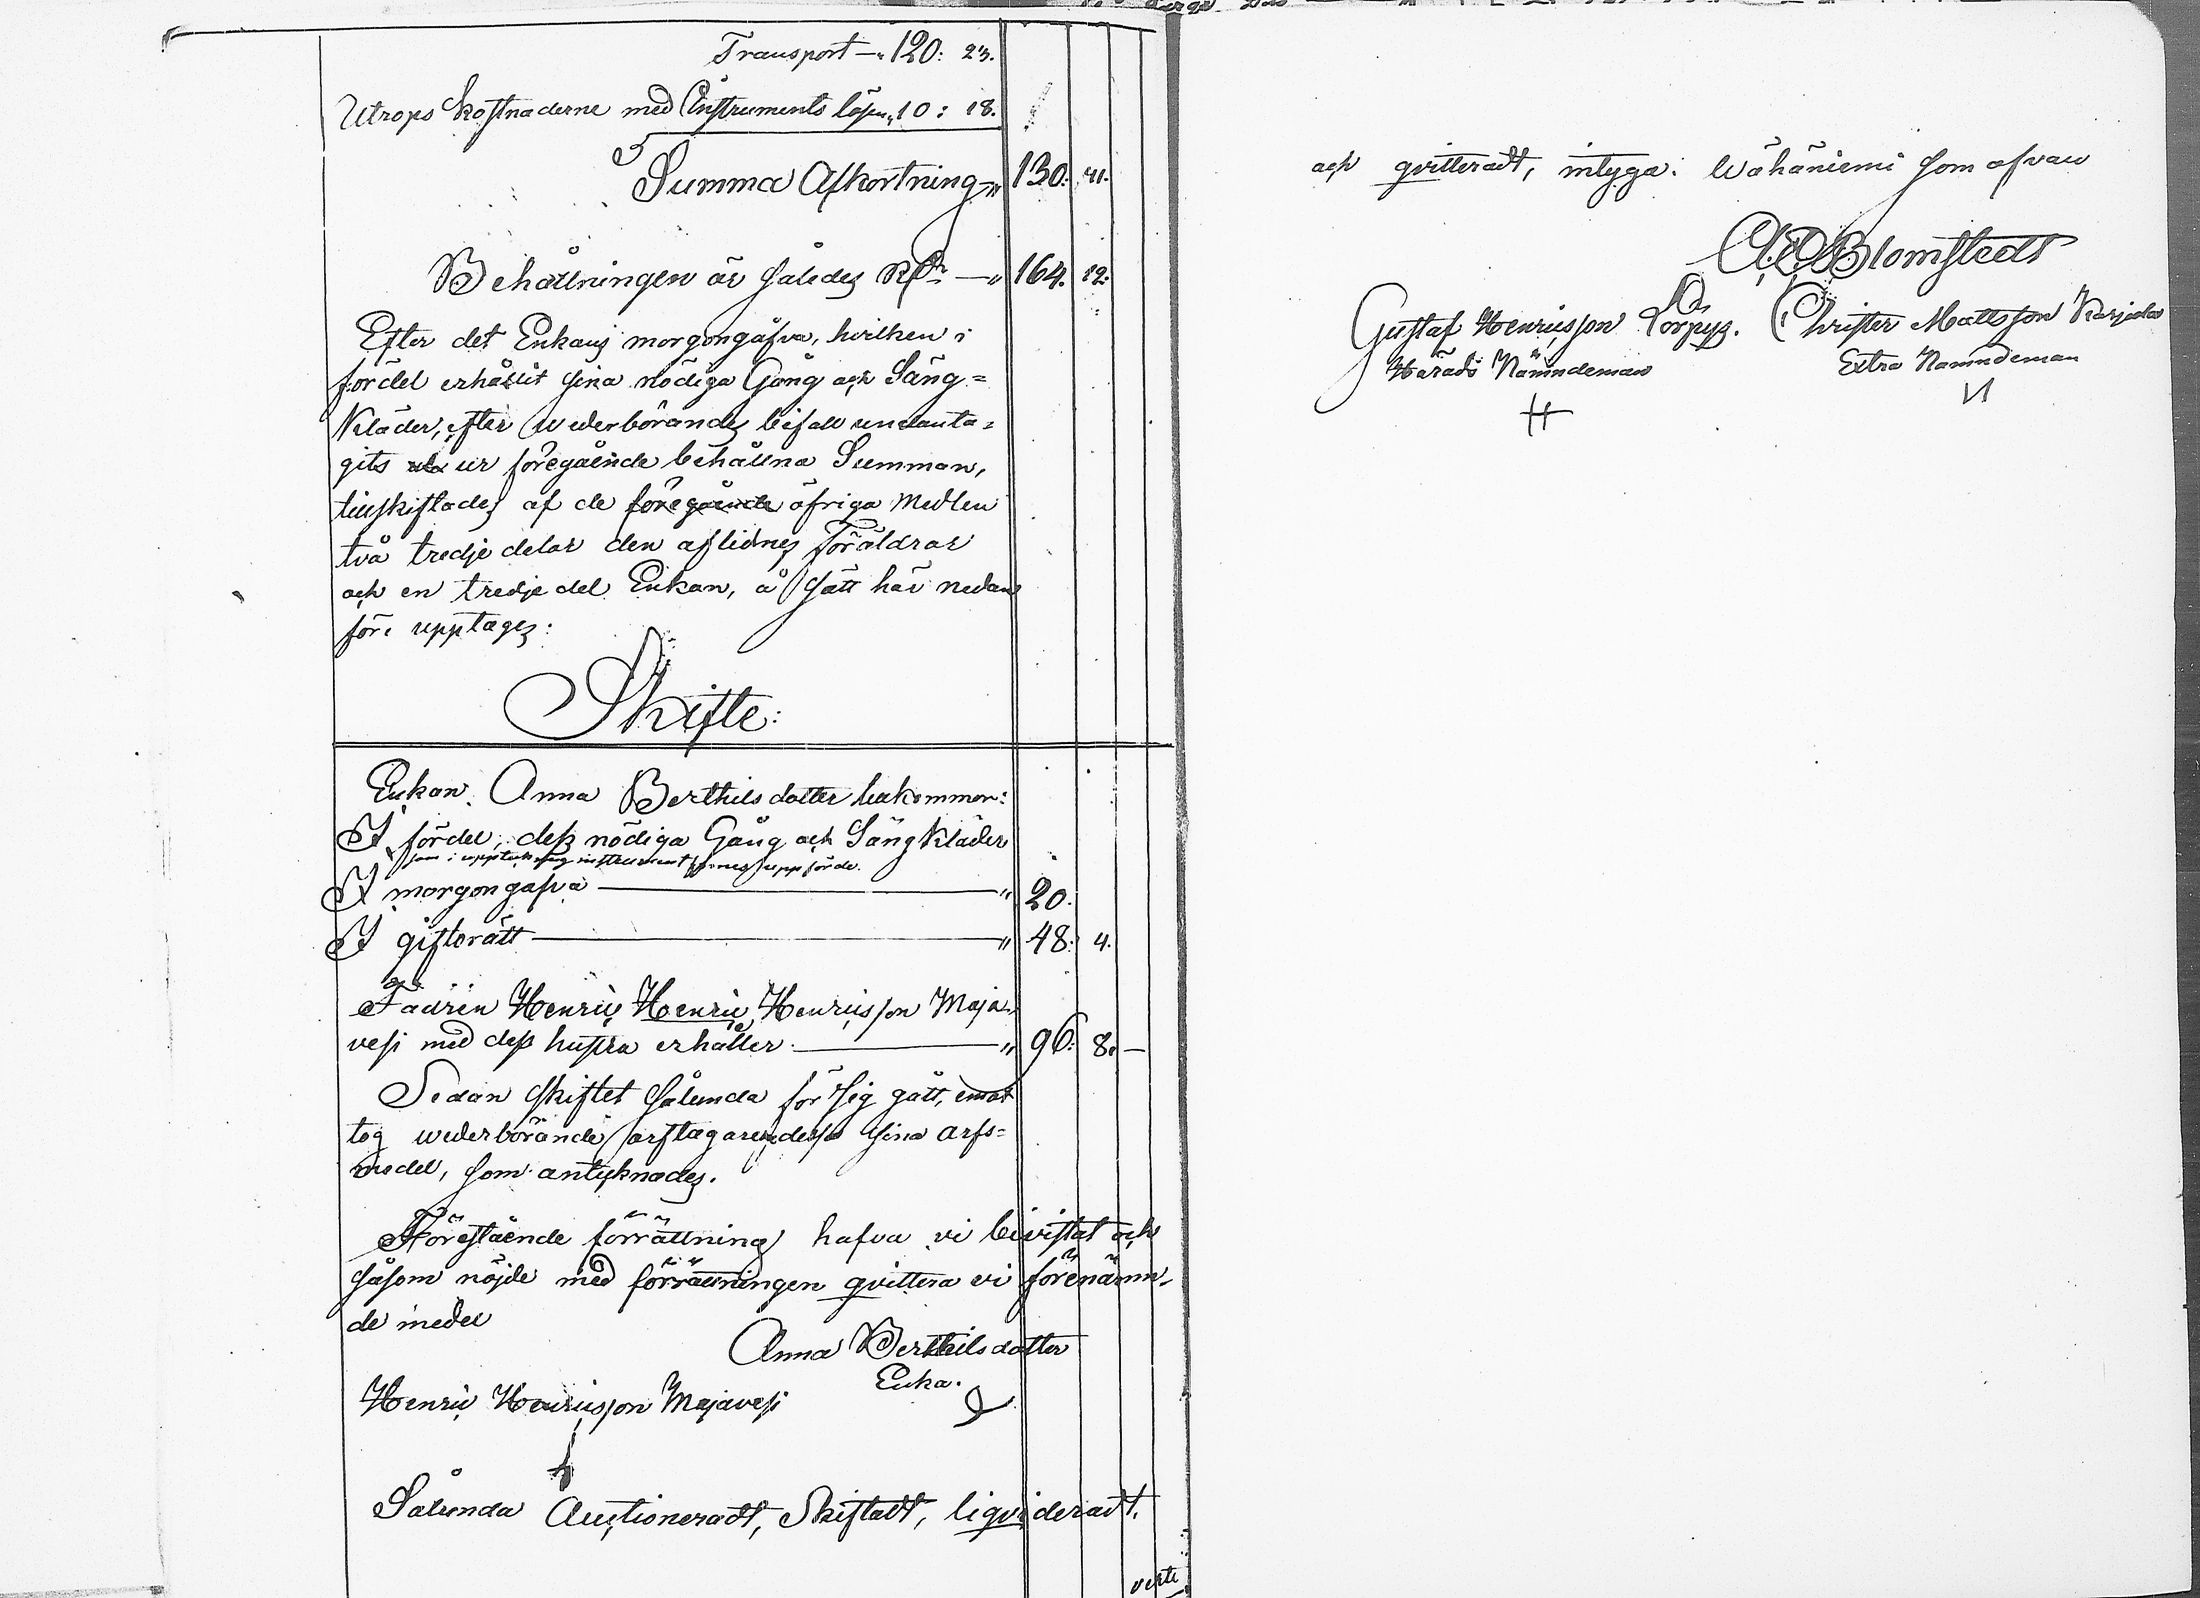 Transport — „ 120: 23.
Utrops kostnaderne med Instruments lösen „ 10: 18.
Summa Afkortning „ 130: 41.
Behållningen är således Rd — „ 164. 12.
Efter det Enkans morgongåfva, hvilken i
fördel erhållit sina nödiga Gång och Säng=
Kläder, efter wederbörandes bifall undanta=
gits ur föregående behållna Summan,
tillskiftades af de föregående öfriga Medlen
två tredje delar den aflidnes Föräldrar
och en tredje del Enkan, å sätt här nedan
före upptages:
Skifte:
Enkan Anna Berthilsdotter bekommer:
I fördel, dess nödiga Gång och Sängkläder
som i uppteckning instrumentet finnes uppförde.
I morgongåfva — „ 20.
I giftorätt — „ 48. 4.
Fadren Henric Henric Henricsson Maja-
vesi med dess hustru erhåller — „ 96. 8. —
Sedan skiftet sålunda för sig gått, emot
tog wederbörande arftagare desse sina arfs=
medel, som antecknades.
Förestående förrättning hafva vi bivistat och
såsom nöjde med förrättningen qvittera vi förenämn-
de medel
Anna Berthilsdotter
Enka.
Henric Henricsson Majavesi
Sålunda Auctioneradt, Skiftadt, liqvideradt,
verte
och qvitteradt, intyga. Wähäniemi som ofvan
A. E. Blomstedt
Gustaf Henricsson Torpys. Christer Mattsson Karjala
Härads Nämndeman Extra Nämndeman